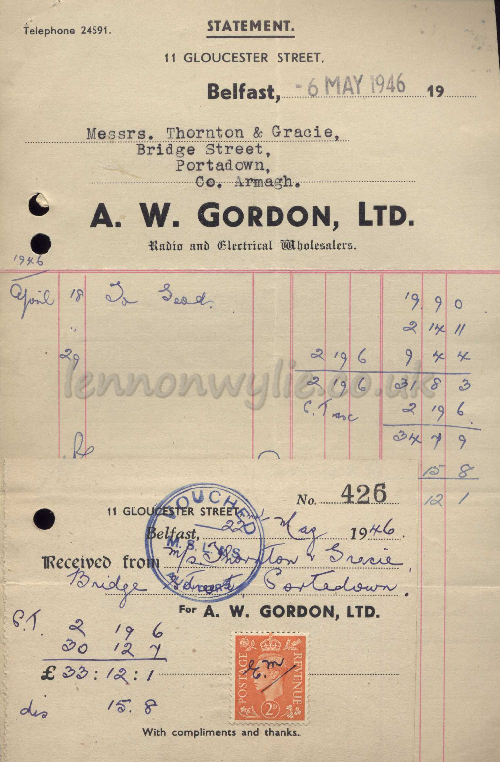 STATEMENT.
Telephone 24591.
11 GLOUCESTER STREET,
Belfast, -6 MAY 1946 19
Messrs. Thornton & Gracie,
Bridge Street,
Portadown,
Co. Armagh.
A. W. GORDON, LTD.
Radio and Electrical Wholesalers.
1946
April 18 To Good. 19 9 0
" 2 14 11
29 2 19 6 9 4 4
2 19 6 31 8 3
2 19 6
34 7 9
15 8
12 1
lennonwylie.co.uk
No. 426
11 GLOUCESTER STREET,
Belfast, 22 May 1946
VOUCHED
Received from M/s Thornton & Gracie
Bridge Street Portadown
For A. W. GORDON, LTD.
P.T. 2 19 6
30 12 7
£33:12:1
dis 15.8
POSTAGE REVENUE
2D
With compliments and thanks.